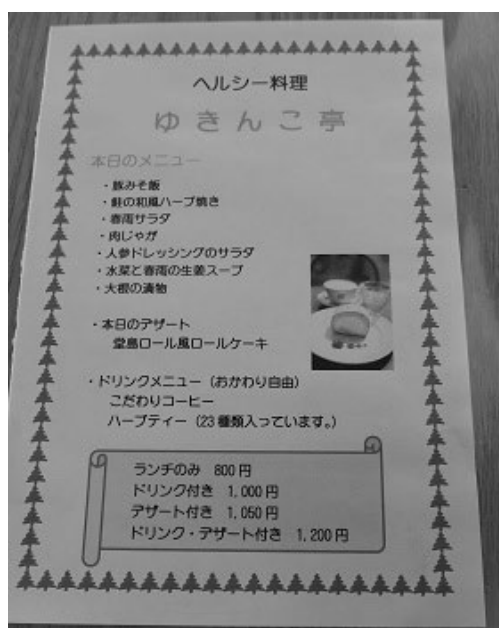 ヘルシー料理
ゆきんこ亭
本日のメニュー
・豚みそ飯
・鮭の和風ハーブ焼き
・春雨サラダ
・肉じゃが
・人参ドレッシングのサラダ
・水菜と春雨の生姜スープ
・大根の漬物
・本日のデザート
堂島ロール風ロールケーキ
・ドリンクメニュー（おかわり自由）
こだわりコーヒー
ハーブティー（23種類入っています。）
ランチのみ 800円
ドリンク付き 1,000円
デザート付き 1,050円
ドリンク・デザート付き 1,200円